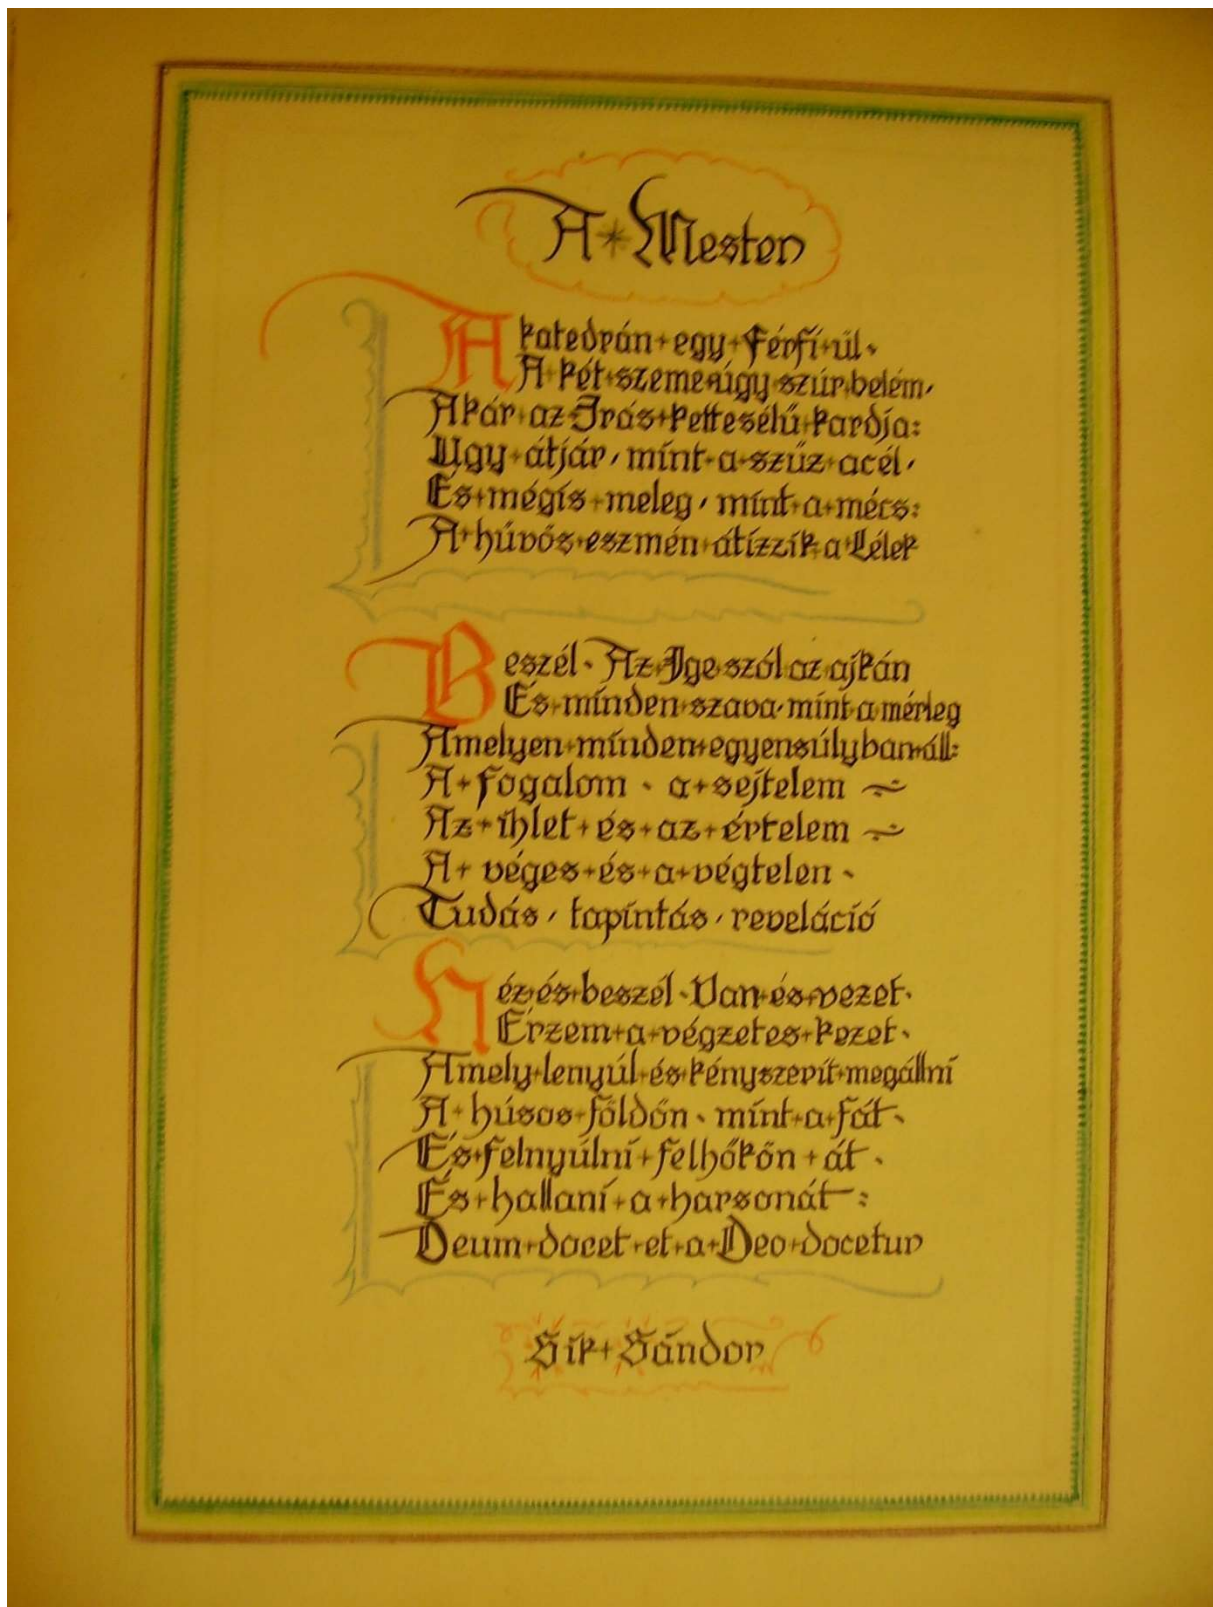 A Mester
A katedrán egy Férfi ül.
A két szeme úgy szúr belém,
Akár az Írás kettesélű kardja:
Úgy átjár, mint a szűz acél,
És mégis meleg, mint a mécs:
A hűvös eszmén átizzik a Lélek
Beszél. Az Ige szól az ajkán
És minden szava, mint a mérleg
Amelyen minden egyensúlyban áll:
A fogalom . a sejtelem
Az ihlet és az értelem
A véges és a végtelen.
Tudás, tapintás, reveláció
Néz és beszél. Van és vezet.
Érzem a végzetes kezet.
Amely lenyúl és kényszerít megállni
A húsos földön . mint a fát.
És felnyúlni felhőkön át.
És hallani a harsonát:
Deum docet et a Deo docetur
Sík Sándor